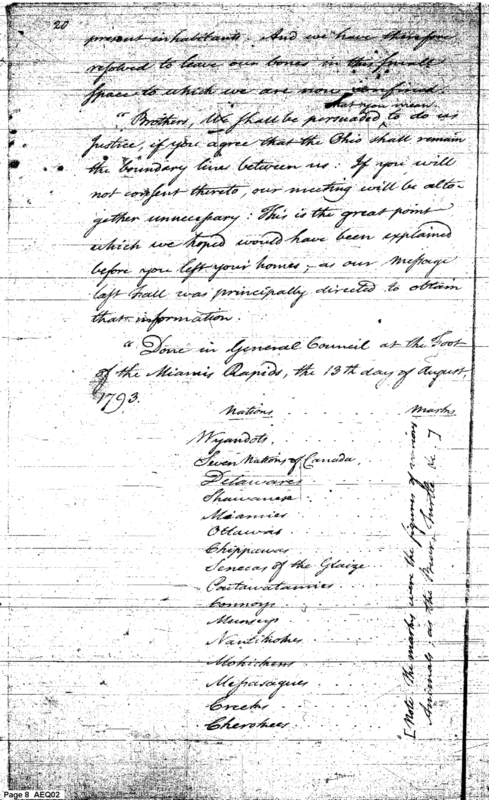 20
present inhabitants. And we have therefore
resolved to leave our bones in this small
space to which we are now confined.
that you mean
"Brothers, We shall be persuaded to do us
Justice, if you agree that the Ohio shall remain
the boundary line between us: If you will
not consent thereto, our meeting will be alto-
gether unnecessary: This is the great point
which we hoped would have been explained
before you left your homes; as our message
last fall was principally directed to obtain
that information.
"Done in General Council at the Foot
of the Miamis Rapids, the 13th day of August,
1793.
Nations Marks
Wyandots.
Seven Nations of Canada,
Delawares
Shawanese
Miamies
Ottawas
Chippawas
Senecas of the Glaize
Poutawatamies
Connoys
Munseys
Nantikokes
Mohickens
Messasagues
Creeks
Cherokees
[Note. The marks were the figures of various
Animals; as the Bear, Turtle &c.]
Page 8 AEQ02